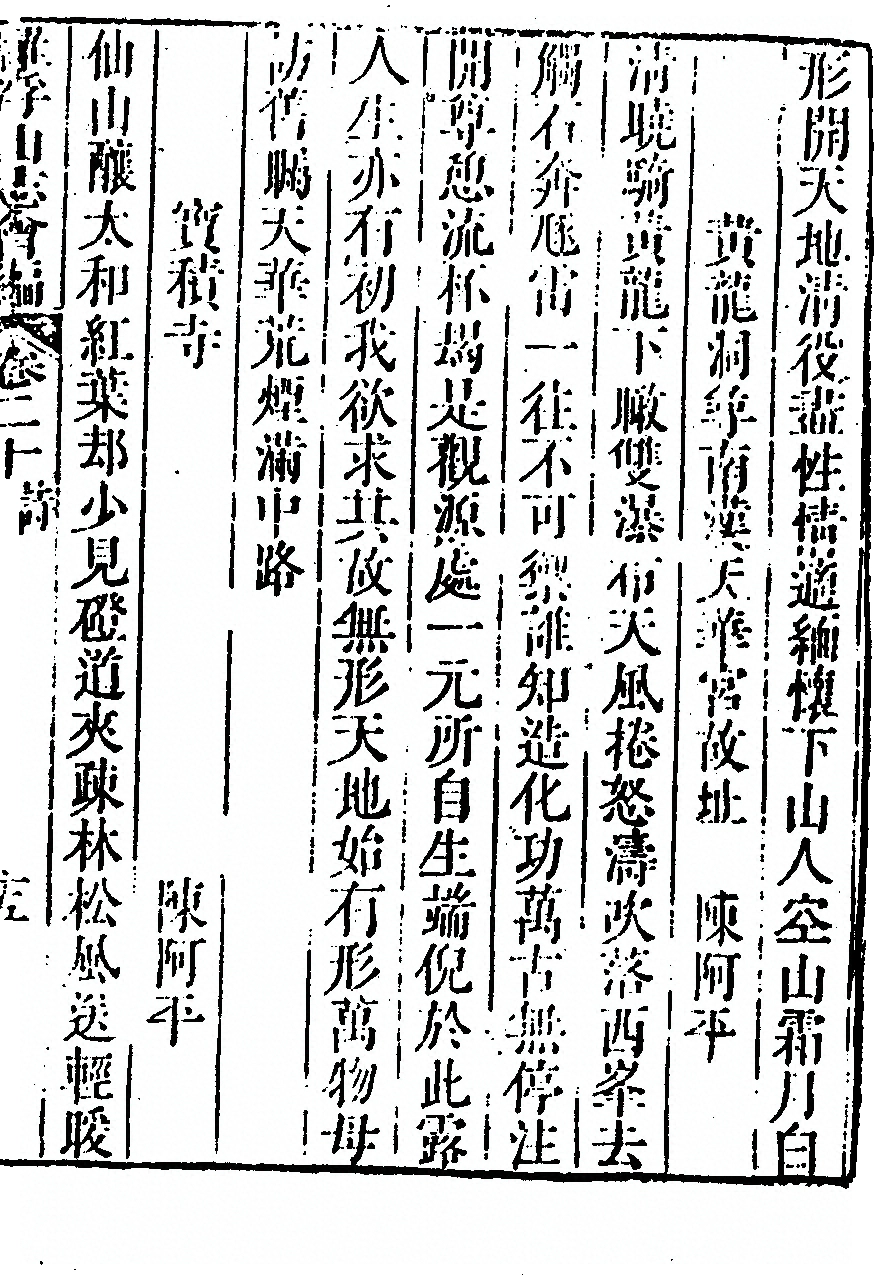 形開天地清役盡性情遒緬懷下山人空山霜月自
黃龍洞尋南漢天華宮故址　陳阿平
清曉騎黃龍下瞰雙瀑布天風捲怒濤吹落西峯去
觸石奔虺雷一往不可禦誰知造化功萬古無停注
開尊憩流杯曷是觀源處一元所自生端倪於此露
人生亦有初我欲求其故無形天地始有形萬物母
訪舊矚天華荒煙滿中路
寶積寺　陳阿平
仙山釀太和紅葉却少見磴道夾疎林松風送輕暖
羅浮山志會編　卷二十　詩